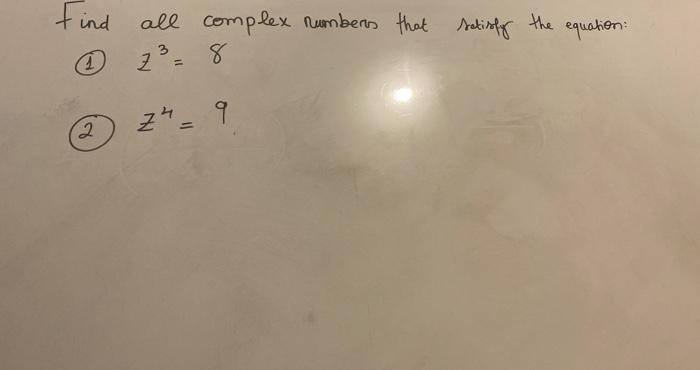 Find all complex numbers that satisfy the equation:
① z³ = 8
② z⁴ = 9